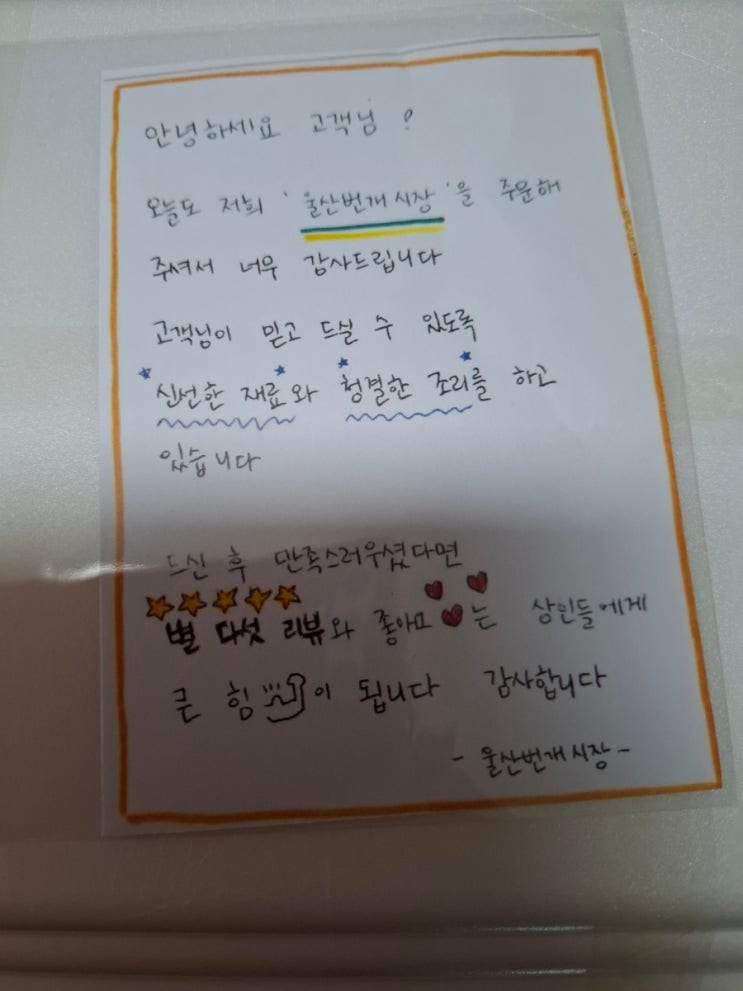 안녕하세요 고객님 ?
오늘도 저희 '울산번개시장'을 주문해
주셔서 너무 감사드립니다
고객님이 믿고 드실 수 있도록
신선한 재료와 청결한 조리를 하고
있습니다
드신 후 만족스러우셨다면
별 다섯 리뷰와 좋아요는 상인들에게
큰 힘이 됩니다 감사합니다
- 울산번개시장 -